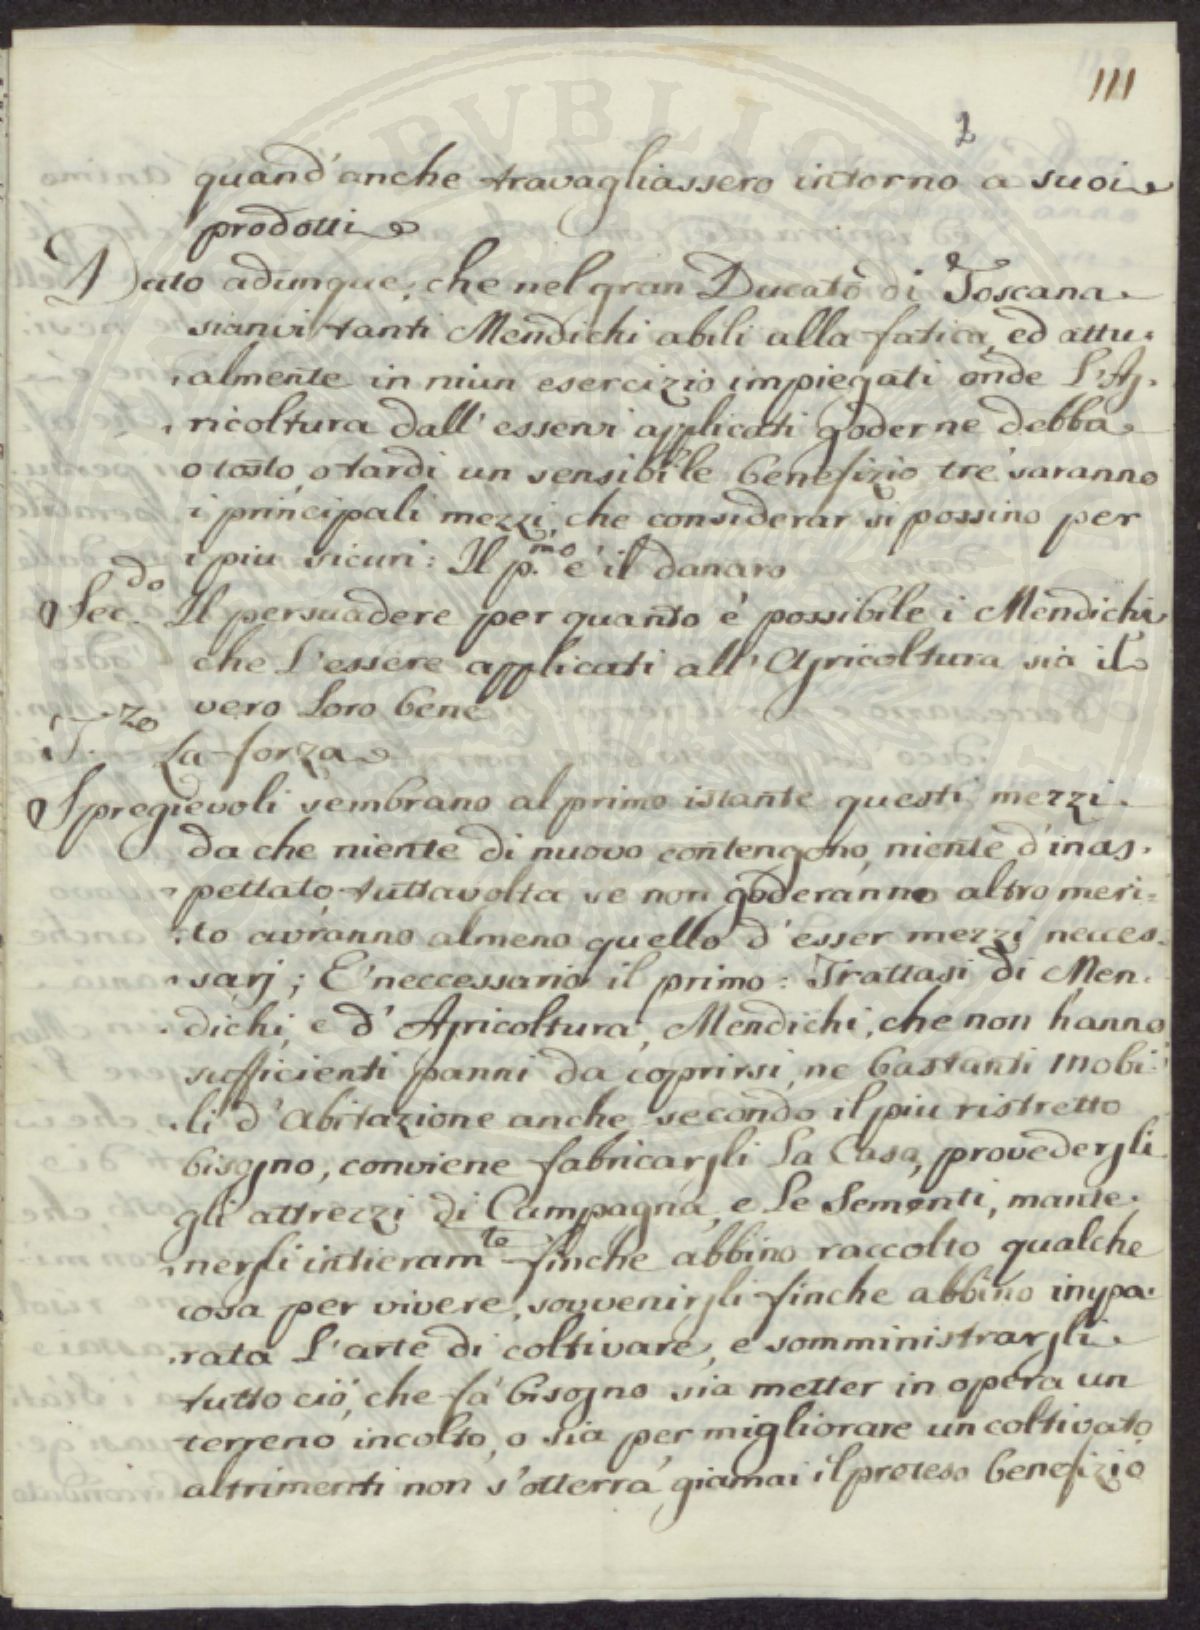 111
2
quand'anche travagliassero intorno a suoi
prodotti
Dato adunque, che nel gran Ducato di Toscana
sianvi tanti Mendichi abili alla fatica, ed attu:
almente in niun esercizio impiegati onde L'Ag.
ricoltura dall'esservi applicati goder ne debba
o tosto, o tardi un sensibile benefizio, tre saranno
i principali mezzi, che considerar si possino per
i piu sicuri: Il p.mo è il danaro
Sec.do Il persuadere per quanto è possibile i Mendichi
che L'essere applicati all'Agricoltura sia il
vero Loro bene
T.zo La forza
Spregievoli sembrano al primo istante questi mezzi
da che niente di nuovo contengono, niente d'inas.
pettato tuttavolta se non goderanno altro meri:
to avranno almeno quello d'esser mezzi necces.
sarj; E' neccessario il primo: Trattasi di Men.
dichi, e d'Agricoltura, Mendichi, che non hanno
sufficienti panni da coprirsi, ne bastanti mobi:
li d'abitazione anche secondo il piu ristretto
bisogno, conviene fabricargli La Casa, provedergli
gli attrezzi di Campagna, e Le Sementi, mante.
nerli intieram.te finche abbino raccolto qualche
cosa per vivere, sovvenirgli finche abbino impa.
rata L'arte di coltivare, e somministrargli
tutto ciò, che fà bisogno sia metter in opera un
terreno incolto, o sia per migliorare un coltivato
altrimenti non s'otterrà giamai il preteso benefizio